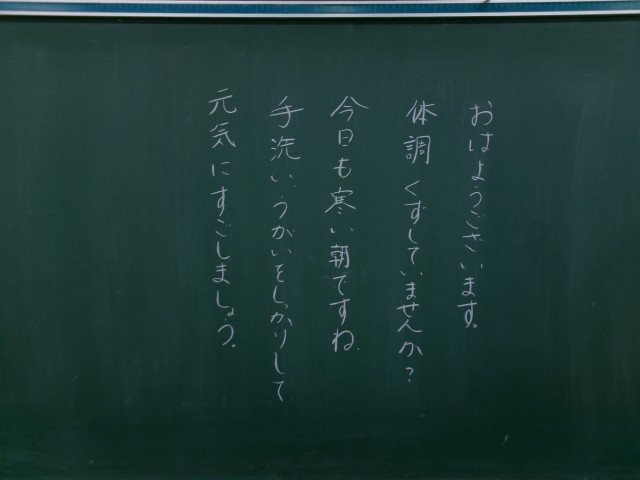 おはようございます。
体調くずしていませんか?
今日も寒い朝ですね.
手洗い、うがいをしっかりして
元気にすごしましょう。